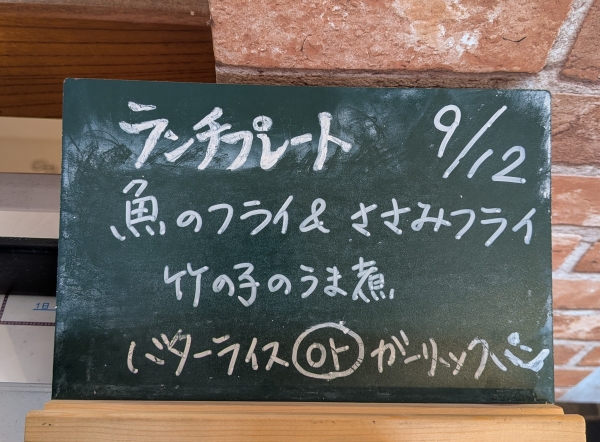 ランチプレート 9/12
魚のフライ& ささみフライ
竹の子のうま煮
バターライス or ガーリックパン
1日